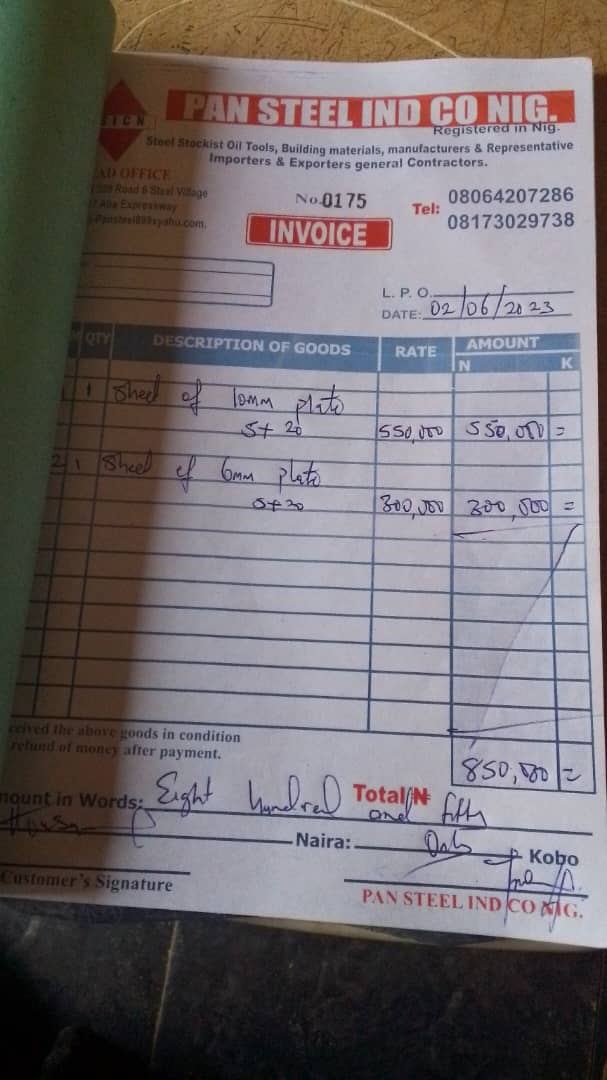 SICN
PAN STEEL IND CO NIG.
Registered in Nig.
Steel Stockist Oil Tools, Building materials, manufacturers & Representative
Importers & Exporters general Contractors.
AD OFFICE
Road 6 Steel Village
Aba Expressway
No.0175
Tel: 08064207286
08173029738
INVOICE
L. P. O.
DATE: 02/06/2023
QTY DESCRIPTION OF GOODS RATE AMOUNT
N K
1 1 Sheet of 10mm plate
St 20 550,000 550,000 =
2 1 Sheet of 6mm plate
St 20 300,000 300,000 =
ceived the above goods in condition
refund of money after payment.
850,000 =
Total ₦
mount in Words: Eight hundred and fifty
Naira: Only Kobo
Customer's Signature
PAN STEEL IND CO NIG.